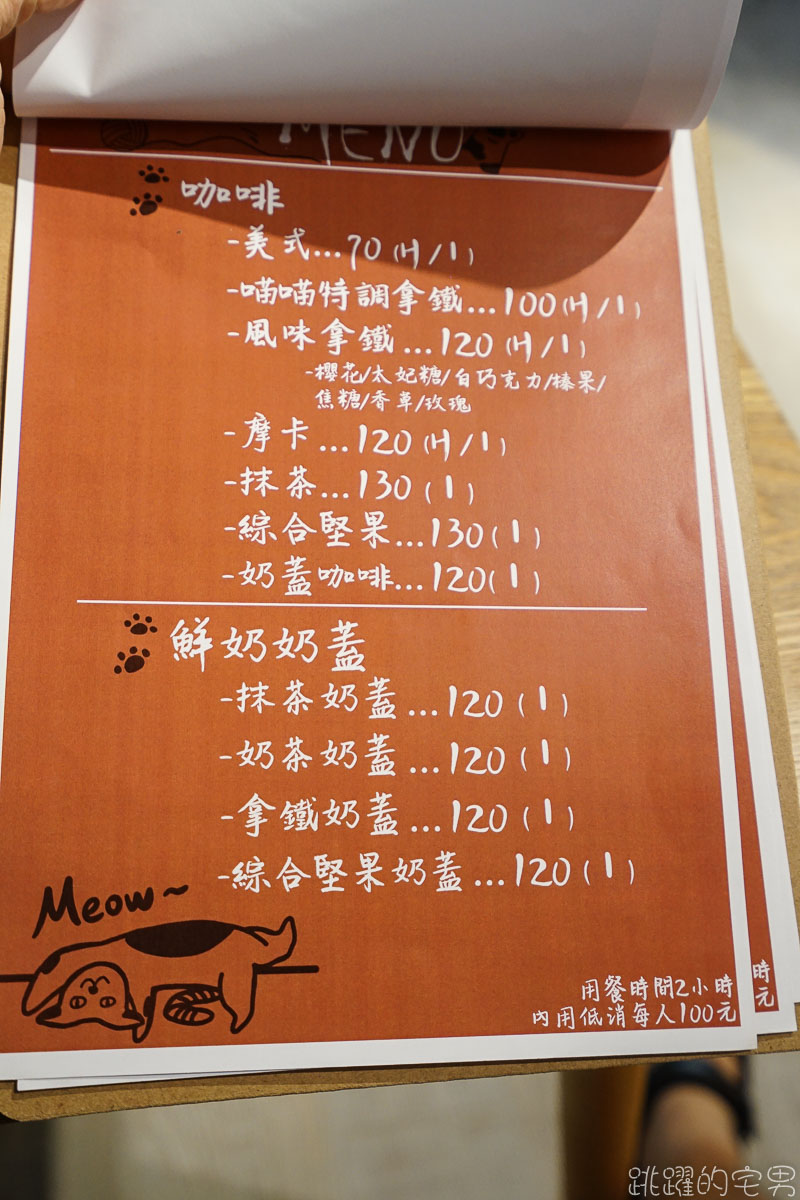 MENU
咖啡
-美式...70 (H/I)
-喵喵特調拿鐵...100(H/I)
-風味拿鐵...120 (H/I)
-櫻花/太妃糖/白巧克力/榛果/
焦糖/香草/玫瑰
-摩卡...120 (H/I)
-抹茶...130 (I)
-綜合堅果...130(I)
-奶蓋咖啡...120(I)
鮮奶奶蓋
-抹茶奶蓋...120 (I)
-奶茶奶蓋...120 (I)
-拿鐵奶蓋...120 (I)
-綜合堅果奶蓋...120 (I)
Meow~
用餐時間2小時
內用低消每人100元
時
元
跳躍的宅男